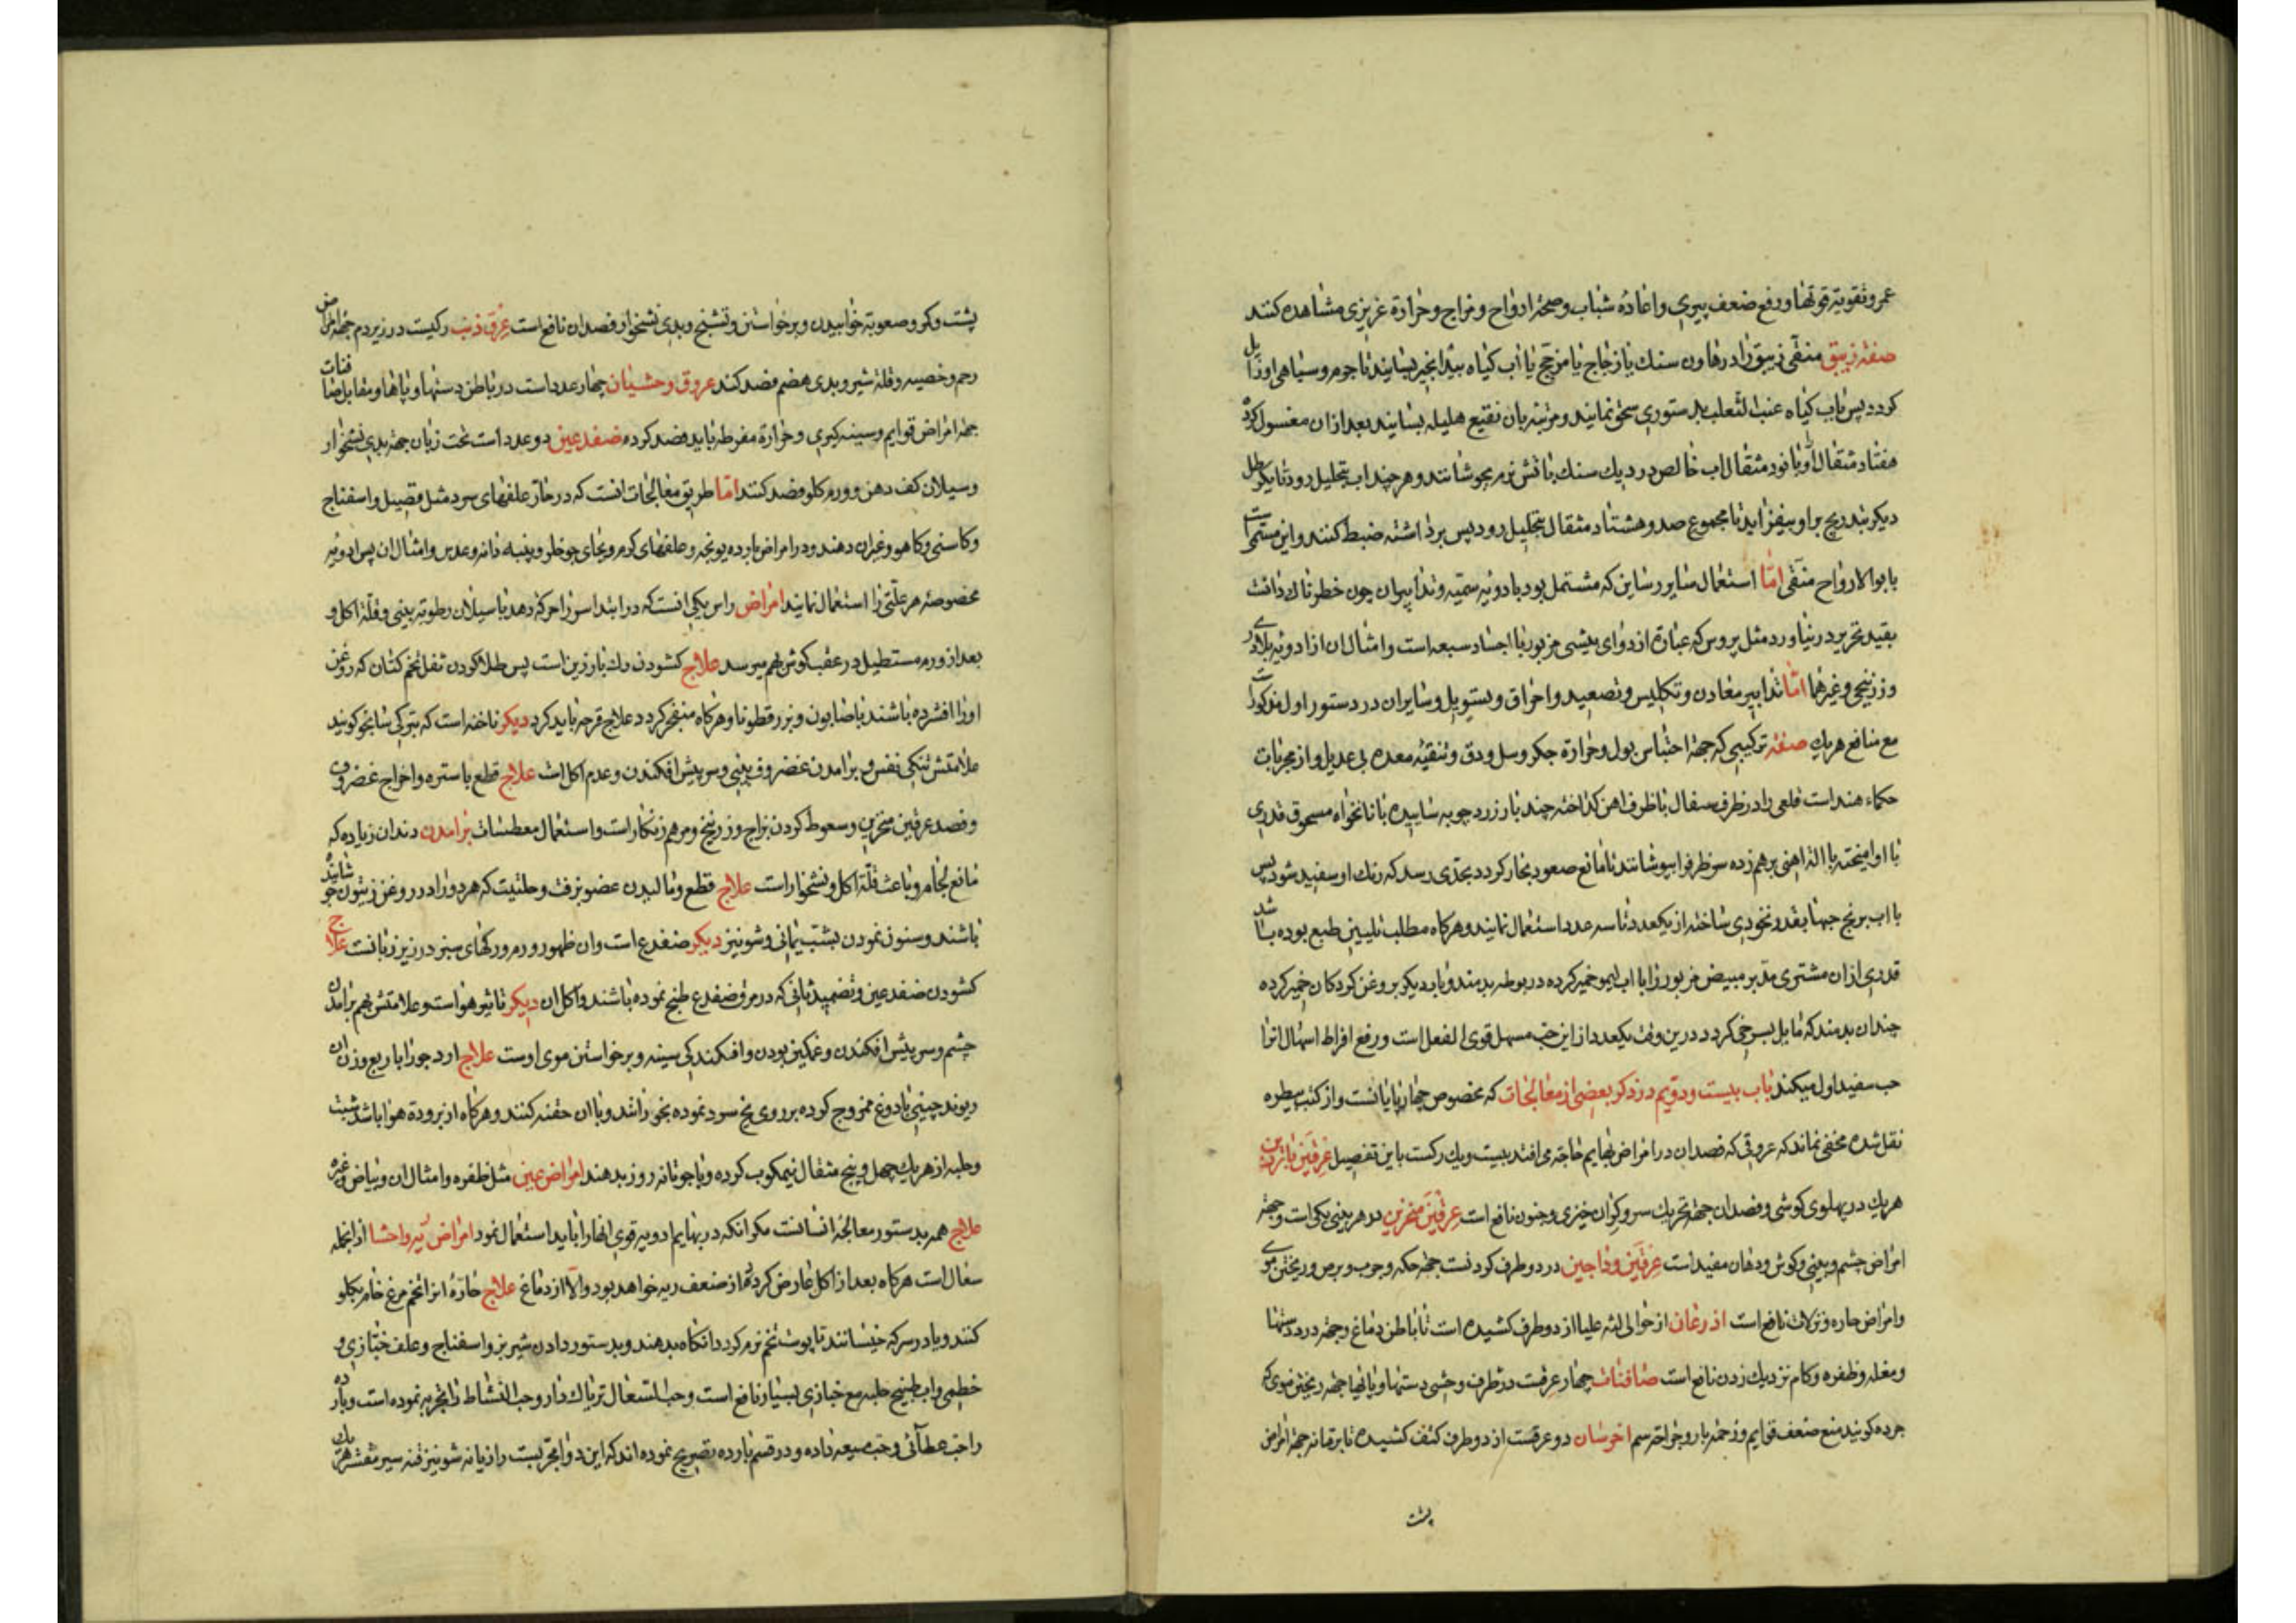 عمر و تقویة قوتها و رفع ضعف پیری و اعادهٔ شباب و صحة ارواح و مزاج و حرارة غریزی مشاهده کنند
صفة زیبق منقی زیبق را در هاون سنك یا زجاج یا مزجج با آب کیاه بیدانجیر بسایند تا جوهر و سیاهی او زایل
کردد پس باب کیاه عنب الثعلب بدستوری سحق نمایند و مرتبهٔ بان نقیع هلیله بسایند بعد از ان مغسول کرده
هفتاد مثقال او با نود مثقال اب خالص در دیك سنك باتش نرم بجوشانند و هر چند اب بتحلیل رود تا یکرطل
دیکر بتدریج بر او بیفزاید تا مجموع صد و هشتاد مثقال بتحلیل رود پس برداشته ضبط کنند و این مسمی است
بابو الارواح منقی اما استعمال سایر رساین که مشتمل بود بادویه سمیه و تدابیر ان چون خطرناك دانست
بقید تحریر در نیاورد مثل پروس که عبارة از دوای بیشی مزبور با اجساد سبعه است و امثال ان از ادویه بلادری
و زرنیخی و غیرهما اما تدابیر معادن و تکلیس و تصعید و احراق و تسویل و سایر ان در دستور اول مذکور است
مع منافع هریك صفة ترکیبی که جهة احتباس بول و حرارة جکر و سل و دق و تنقیهٔ معده بی عدیل و از مجربات
حکماء هند است قلعی را در ظرف سفال یا ظرف اهن کداخته چند بار زرد چوبه ساییده با نانخواه مسحوق قدری
با او امیخته با الة اهنی برهم زده سر ظرف را بپوشانند تا مانع صعود بخار کردد بحدی رسد که رنك او سفید شود پس
با اب برنج حبها بقدر نخودی ساخته از یکعدد تا سه عدد استعمال نمایند و هرکاه مطلب تلیین طبع بوده باشد
قدری از ان مشتری مدبر مبیض مزبور را با اب لیمو خمیر کرده در بوطه بدمند و بار دیکر بروغن کردکان خمیر کرده
چندان بدمند که مایل بسرخی کردد درین وقت یکعدد از این حب مسهل قوی الفعل است و رفع افراط اسهال انرا
حب سفید اول میکند باب بیست و دویم در ذکر بعضی از معالجات که مخصوص چهارپایانست و از کتب بیطره
نقل شده مخفی نماند که عروقی که فصد ان در امراض بهایم حاجة می افتد بیست و یك رکست باین تفصیل عرقین بارزین
هریك در پهلوی کوشی و فصد ان جهة تحریك سر و کران خیزی و جنون نافع است عرقین منخرین در هر بینی یکی است و جهة
امراض چشم و بینی و کوش و دهان مفید است عرقین وداجین در دو طرف کردنست جهة حکه و جرب و برص و ریختن موی
و امراض حاره و نزلات نافع است اذرعان از حوالی لثه علیا از دو طرف کشیده است تا باطن دماغ و جهة درد دستها
و مغله و ظفره و کام نزدیك زدن نافع است صافنات چهار عرقست در طرف وحشی دستها و پایها جهة ریختن موی که
جرده کویند منع ضعف قوایم و زحمة بار و جراحة سم اخرسان دو عرقست از دو طرف کتف کشیده تا برقانه جهة امراض
پشت
پشت و کر و صعوبة خوابیدن و برخواستن و تشنج و بدی نشخوار فصد ان نافع است عرق ذنب رکیست در زیر دم جهة امراض
رحم و خصیه و قلة شیر و بدی هضم فصد کنند عروق وحشیان چهار عدد است در باطن دستها و پاها و مقابل صافنات
جهة امراض قوایم و سینه کیری و حرارة مفرطه باید فصد کرد ضفدعین دو عدد است تحت زبان جهة بدی نشخوار
و سیلان کف دهن و ورم کلو فصد کنند اما طریق معالجات انست که در حار علفهای سرد مثل قصیل و اسفناج
و کاسنی و کاهو و غیر ان دهند و در امراض بارده یونجه و علفهای کرم و بجای جو خلر و پنبه دانه و عدس و امثال ان پس ادویهٔ
مخصوصهٔ هر علتی را استعمال نمایند امراض راس یکی انست که در ابتدا سر را حرکة دهد با سیلان رطوبة بینی و قلة اکل و
بعد از ورم مستطیل در عقب کوش بهم میرسد علاج کشودن رك بارزین است پس طلا کردن ثفل تخم کتان که روغن
او را افشرده باشند با صابون و بزر قطونا و هرکاه منفجر کردد علاج قرحه باید کرد دیکر ناخنه است که بترکی کویند
علامتش تنکی نفس و برامدن غضروف بینی و سر پیش افکندن و عدم اکل است علاج قطع باستره و اخراج غضروف
و فصد عرقین منخرین و سعوط کردن بزاج و زرنیخ و مرهم زنکار است و استعمال معطسات برامدن دندان زیاده که
مانع لجام و باعث قلة اکل و نشخوار است علاج قطع و مالیدن عضو بزفت و حلتیت که هر دو را در روغن زیتون جوشانیده
باشند و سنون نمودن بشب یمانی و شونیز دیکر ضفدع است و ان ظهور ورم و رکهای سبز در زیر زبانست علاج
کشودن ضفدعین و تضمید بنانی که در مرق ضفدع طبخ نموده باشند و اکل ان دیکر تاثیر هوا است و علامتش بهم برامدن
چشم و سر پیش افکندن و غمکین بودن و افکندکی سینه و برخواستن موی اوست علاج ارد جو را با ربع وزن ان
ریوند چینی با دوغ ممزوج کرده بر روی یخ سرد نموده بخورانند و با ان حقنه کنند و هرکاه از برودة هوا باشد شبت
و حلبه از هریك چهل و پنج مثقال نیمکوب کرده و با جو تا نه روز بدهند امراض عین مثل ظفره و امثال ان و بیاض و غیره
علاج همه بدستور معالجهٔ انسانست مکر انکه در بهایم ادویه قوی انها را باید استعمال نمود امراض ریه و احشا از انجمله
سعال است هرکاه بعد از اکل عارض کردد از ضعف ریه خواهد بود و الا از دماغ علاج حارهٔ انرا تخم مرغ خام بکلو
کنند و یا در سرکه خیسانند تا پوست تخم نرم کردد انکاه بدهند و بدستور دادن شیر بز و اسفناج و علف خبازی و
خطمی و اب طبیخ حلبه مع خبازی بسیار نافع است و حب السعال تریاك دار و حب النشاط را تجربه نموده است و بارده
را حب عطائی و حب میعه داده و در قسم بارده تصریح نموده اند که این دوا مجربست رازیانه شونیز قنه سیر مقشر هریك